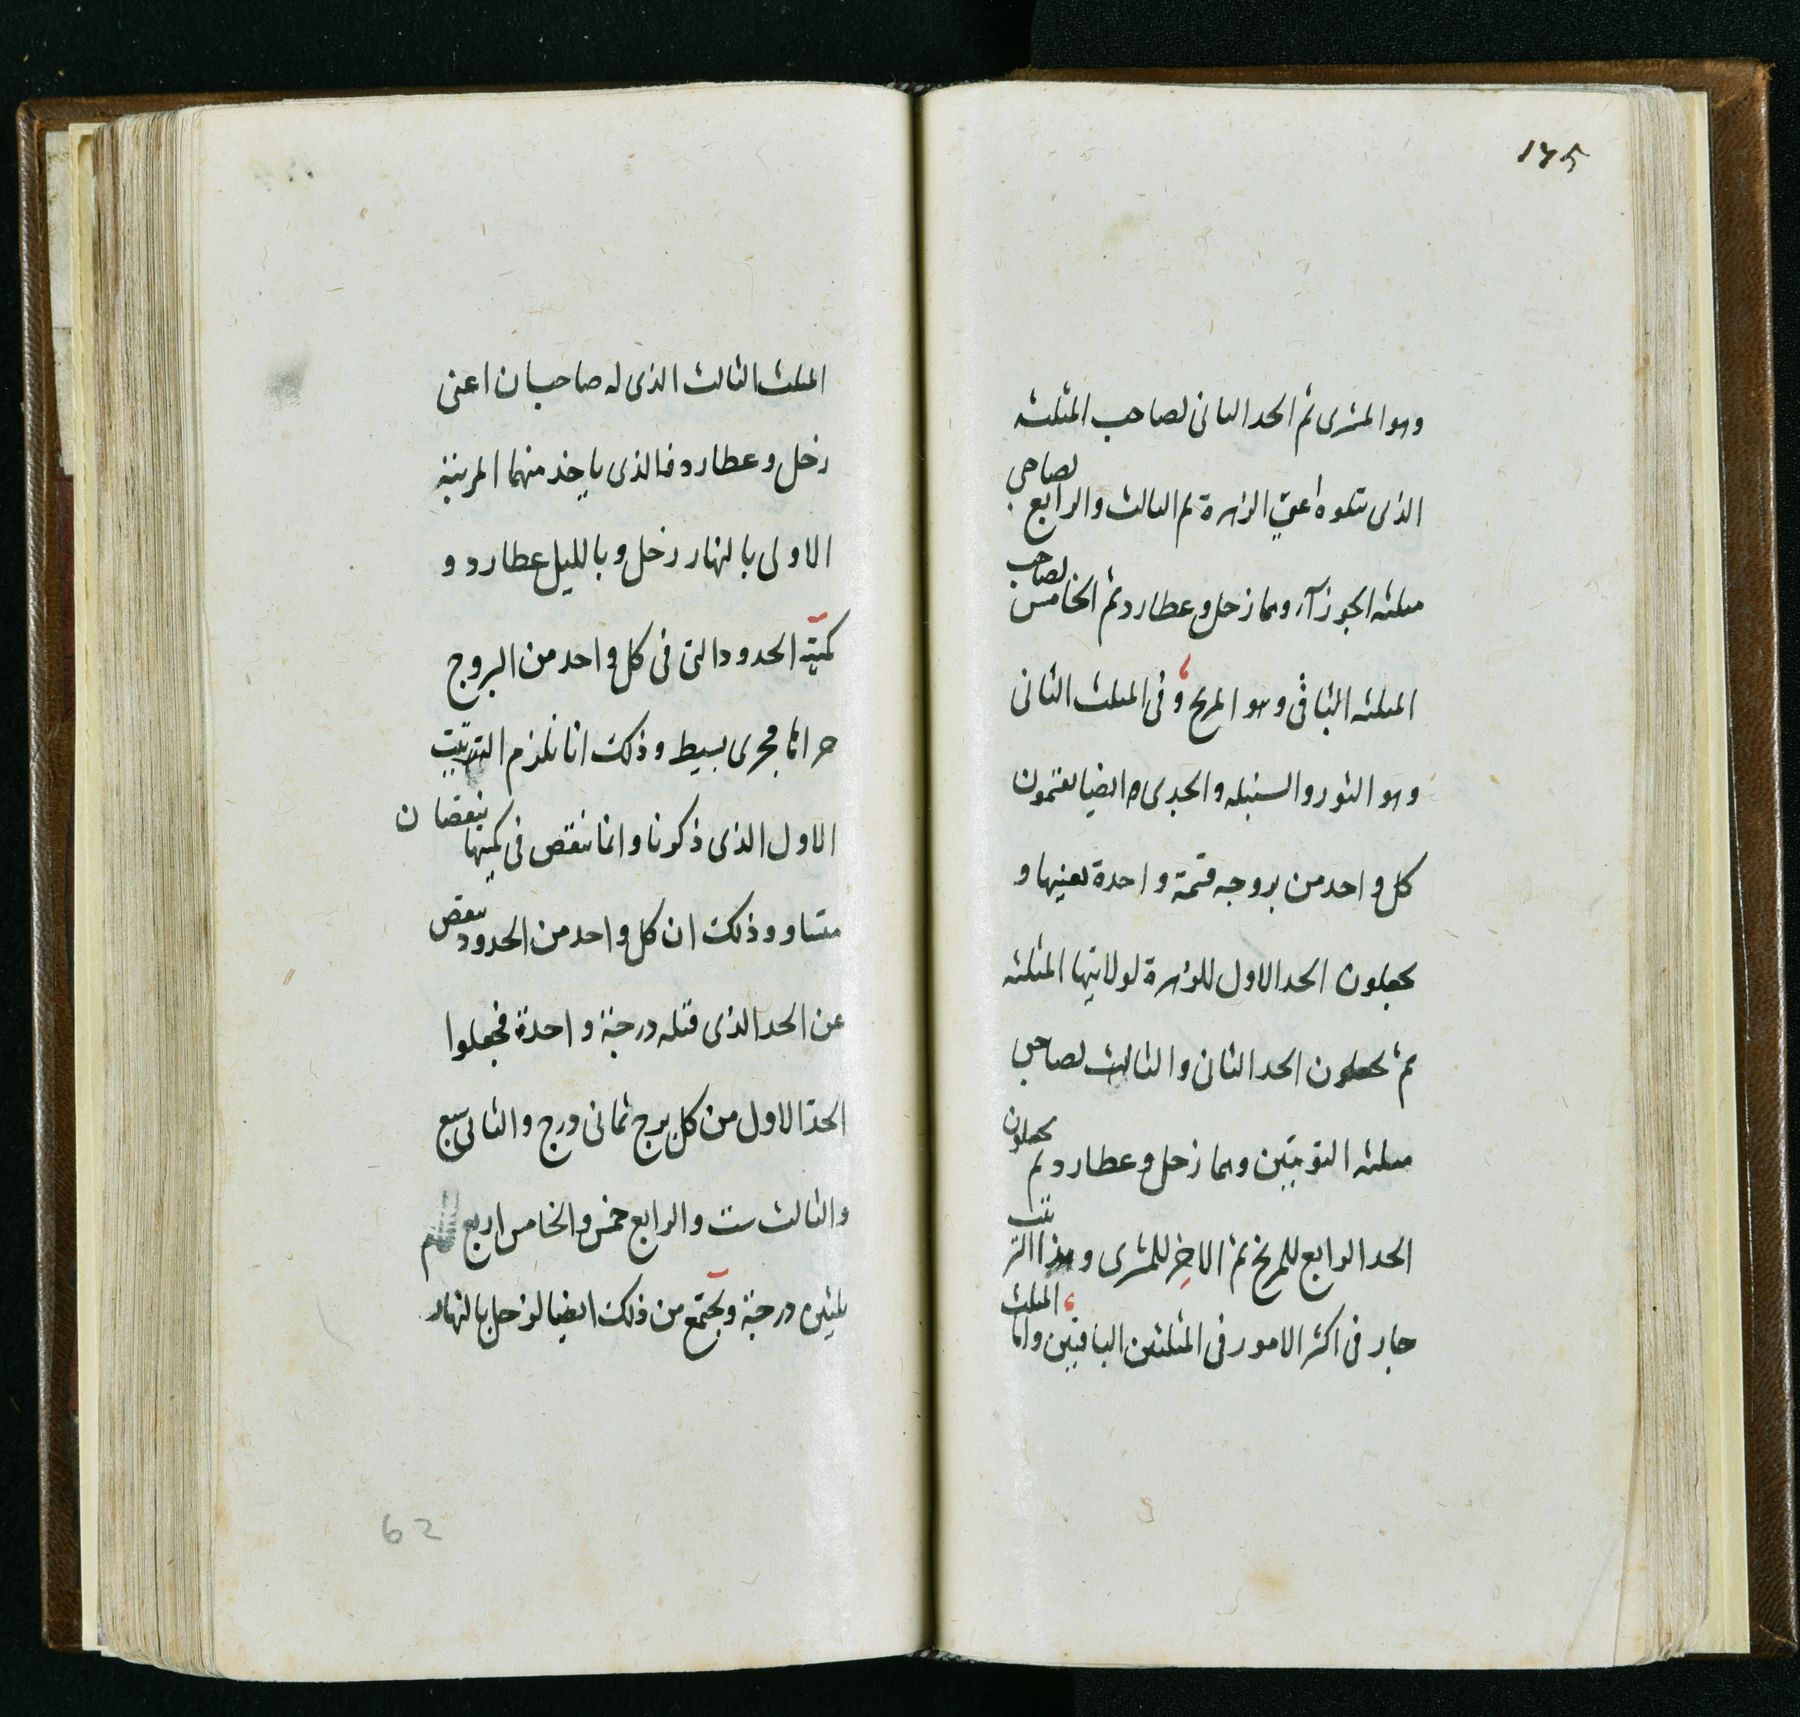 ١٢٥
وهو المشرى ثم الحد الثانى لصاحب المثلثه
الذى تتلوه اعنى الزهرة ثم الثالث والرابع لصاحبى
مثلثه الجوزآء وهما زحل وعطارد ثم الخامس لصاحب
المثلثه الثاقى وهو المريخ وفى المثلث الثانى
وهو الثور والسنبله والجدى ايضا يقتمون
كل واحد من بروجه قتمة واحدة بعينها و
يجعلون الحد الاول للزهرة لولايتها المثلثه
ثم يجعلون الحد الثانى والثالث لصاحبى
مثلثه التوءمين وهما زحل وعطارد ثم يجعلون
الحد الرابع للمريخ ثم الاخير للمشرى وهذا الترتيب
جار فى اكثر الامور فى المثلثين الباقيين واما المثلث
المثلث الثالث الذى له صاحبان اعنى
زحل وعطارد فالذى ياخذ منهما المرتبة
الاولى بالنهار زحل وبالليل عطارد و
كميّة الحدود التى فى كل واحد من البروج
مجرى بسيط وذلك انا نلزم الترتيب
الاول الذى ذكرنا وانا ننقص فى كميتها بنقصان
متساو وذلك ان كل واحد من الحدود ينقص
عن الحد الذى قبله درجة واحدة فجعلوا
الحدّ الاول من كل برج ثمانى درج والثانى سبع
والثالث ست والرابع خمس والخامس اربع
ثلثين درجة ويجتمع من ذلك ايضا لزحل بالنهار
62